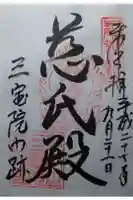 奉拝 平成二十七年
九月二十一日
慈氏殿
三宝院門跡